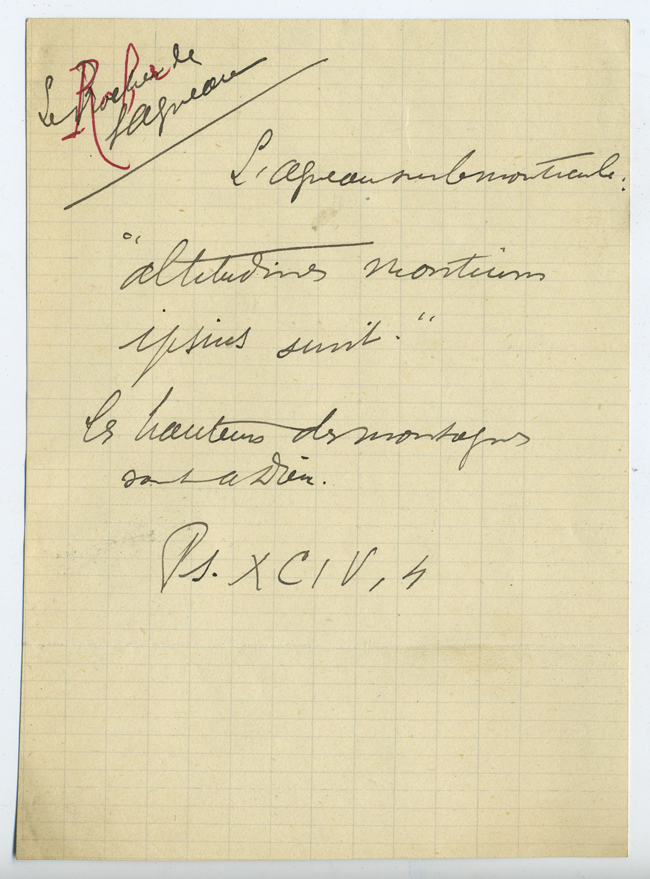 Le Rocher de
l'agneau
L'agneau sur le monticule :
"altitudines montium
ipsius sunt."
les hauteurs des montagnes
sont a Dieu.
Ps. XCIV, 4